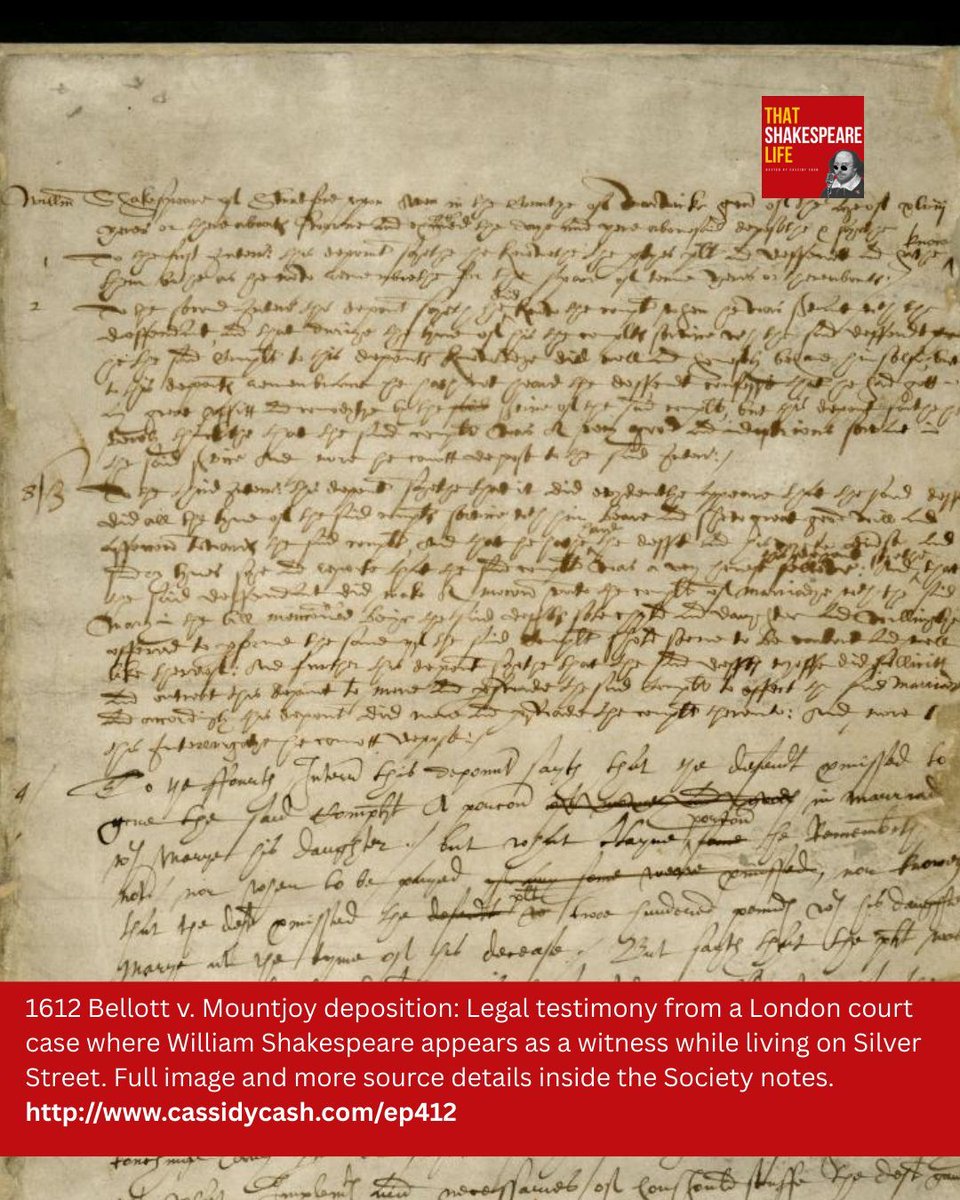 Willm Shakespeare of Stratford vpon Aven in the Countye of Warwicke gent of the Age of xlviij
yeres or thereaboutes sworne and examined the daye and yere abovesaid deposethe & sayethe
1 To the first Interr this deponent sayethe he knowethe the partyes plt and deffendt and hathe know
them bothe as he now remembrethe for the space of tenne yeres or thereaboutes /
2 To the second Interr this deponent sayeth he did know the complt when he was servant with the
deffendant, and that duringe the tyme of his the complts service with the said deffendt
he the said Complt to this deponentes knowledge did well and honestly behave himselfe, but
to this deponentes remembrance he hath not heard the deffendt confesse that he had gott
great profitt and comodytye by the service of the said complt, but this deponent saithe he
verely thinckethe that the said complt was A very good and industrious servant in
the said service And more he canott depose to the said Interr /
3 To the third Interr this deponent sayethe that it did evydentlye appeare that the said deff
did all the tyme of the said complts service with him beare and shew great good will and
affeccion towardes the said complt, and that he hath hard the defft and his wyefe diverse and
sundry tymes saye and reporte that the said complt was a very honest fellowe: And that
the said deffendant did make A mocion vnto the complt of marriadge with the said
Mary in the bill mencioned beinge the said deffts sole chyld and daughter and willinglye
offered to performe the same yf the said Complt shold seeme to be content and well
like thereof: And further this deponent sayethe that the said deffts wyeffe did sollicitt
and entreat this deponent to move and perswade the said Complt to effect the said Marriadge
And accordingly this deponent did move and perswade the complt therevnto: And more
this Interrogatorye he canott depose /
4 To the ffourth Interr this deponent sayth that the defendt promissed to
geue the said Complt A porcion in marriadge
with Marye his daughter./ but what certayne porcion he Rememberithe
not./ nor when to be payed nor knoweth
that the deft promissed the plt twoe hundered poundes with his daughter
Marye at the tyme of his decease./ But sayth that the plt
THAT
SHAKESPEARE
LIFE
HOSTED BY CASSIDY CASH
1612 Bellott v. Mountjoy deposition: Legal testimony from a London court
case where William Shakespeare appears as a witness while living on Silver
Street. Full image and more source details inside the Society notes.
http://www.cassidycash.com/ep412
Implemtes and necessaries of houshould stuffe the deft